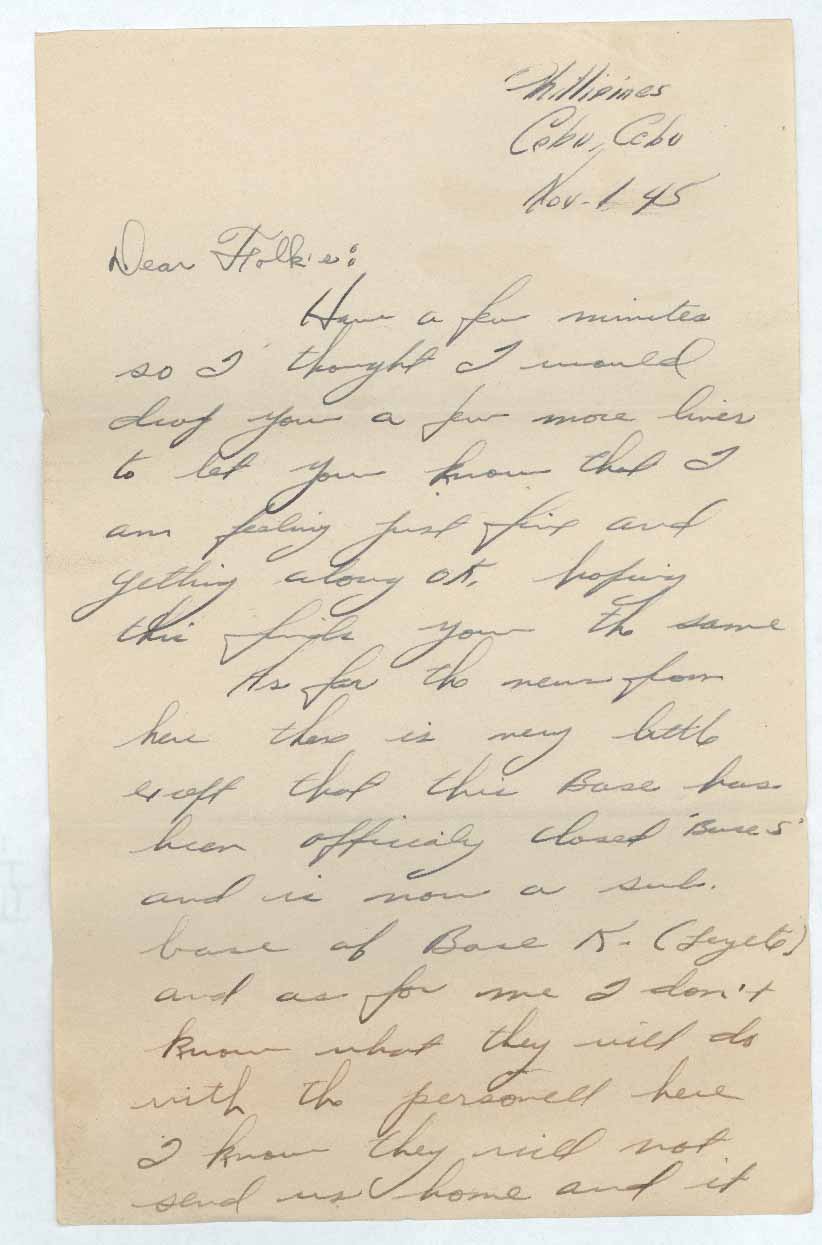 Phillipines
Cebu, Cebu
Nov-1-45
Dear Folk's:
Have a few minutes
so I thought I would
drop you a few more lines
to let you know that I
am feeling just fine and
getting along OK, hoping
this finds you the same
As for the news from
here there is very little
except that this Base has
been officialy closed "Base S"
and is now a sub.
base of Base K. (Leyete)
and as for me I don't
know what they will do
with the personell here
I know they will not
send us home and it